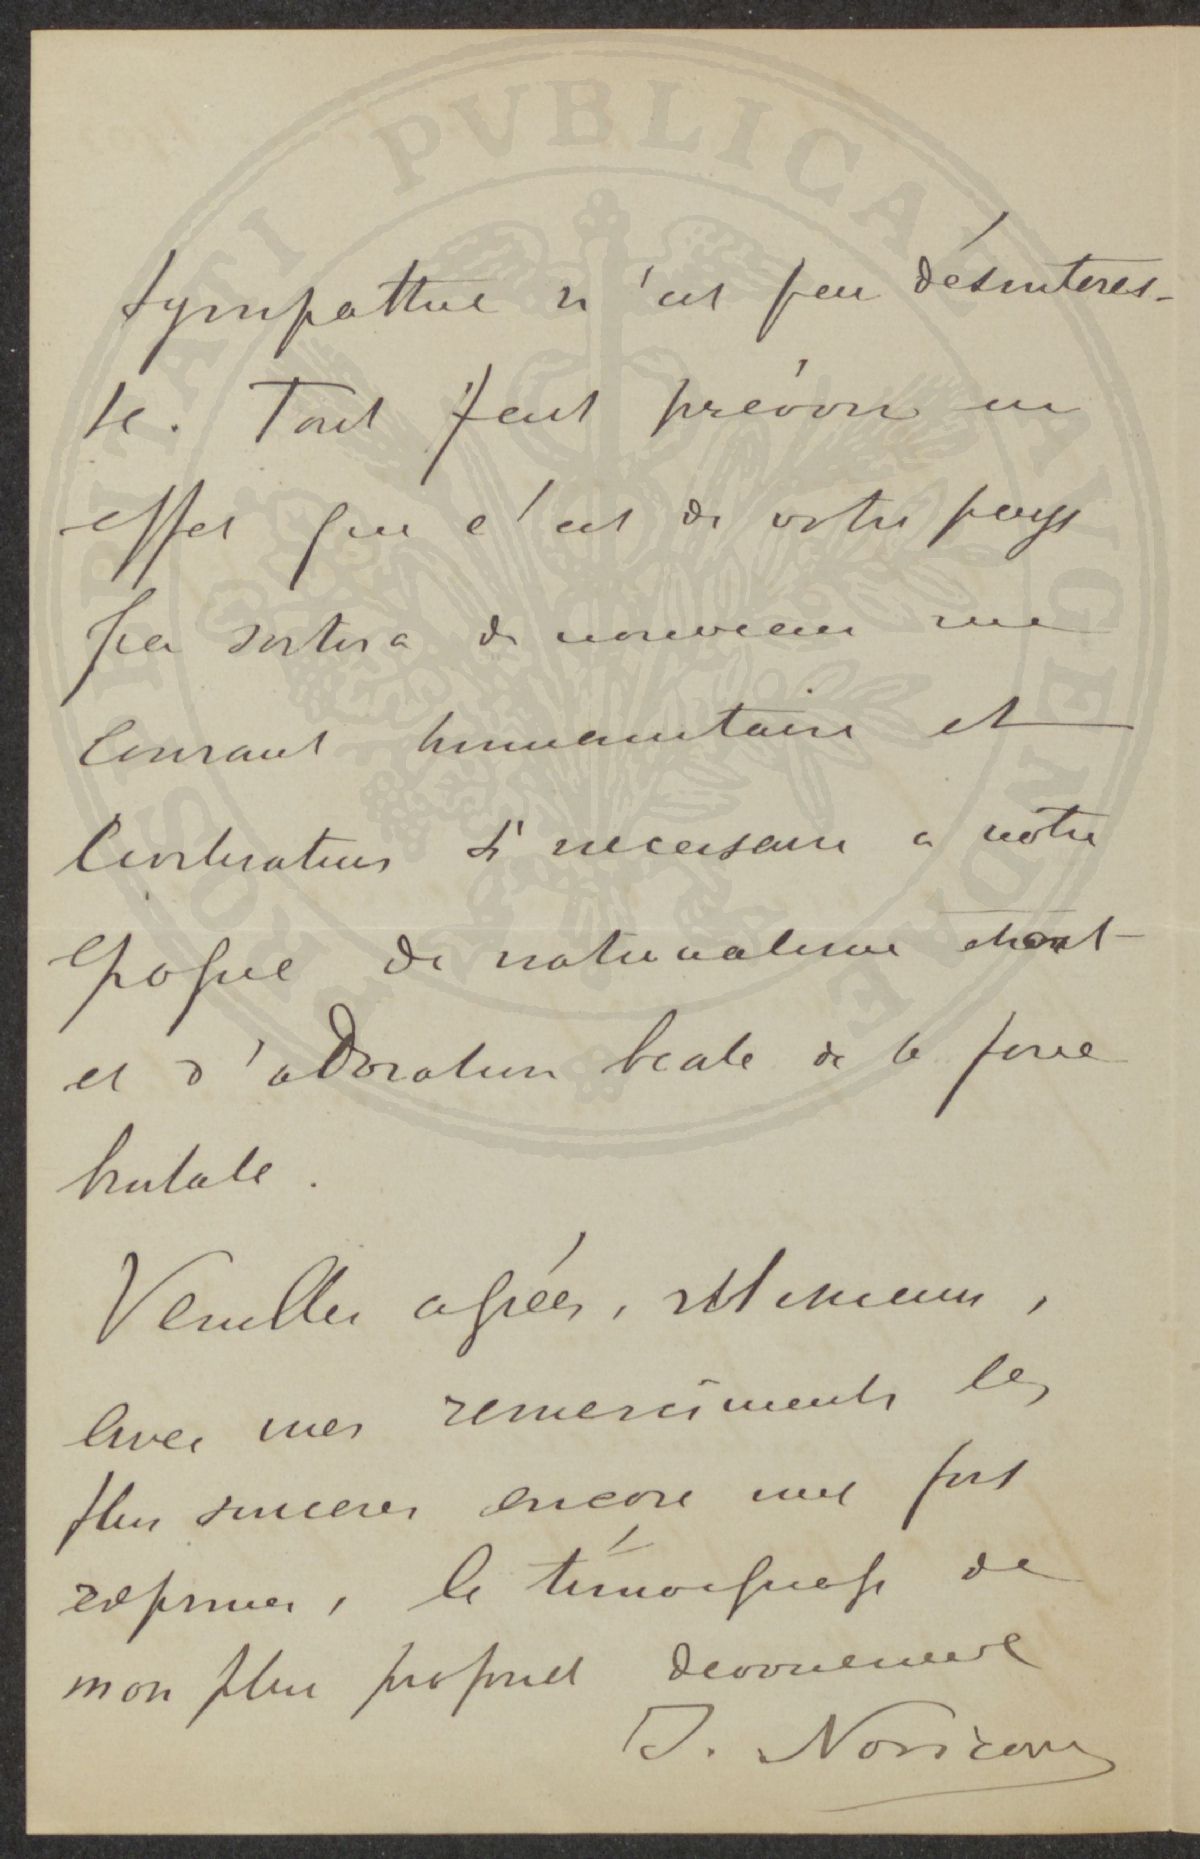 PROSPERITATI PVBLICAE AVGENDAE
sympathie n'est pas désintéres-
sé. Tout fait prévoir en
effet que c'est de votre pays
que sortira de nouveau un
courant humanitaire et
civilisateur si necessaire a notre
epoque de nationalisme etroit
et d'adoration beate de la force
brutale.
Veuillez agréer, Monsieur,
avec mes remerciments les
plus sinceres encore une fois
exprimés, le témoignage de
mon plus profond devouement
J. Novicow